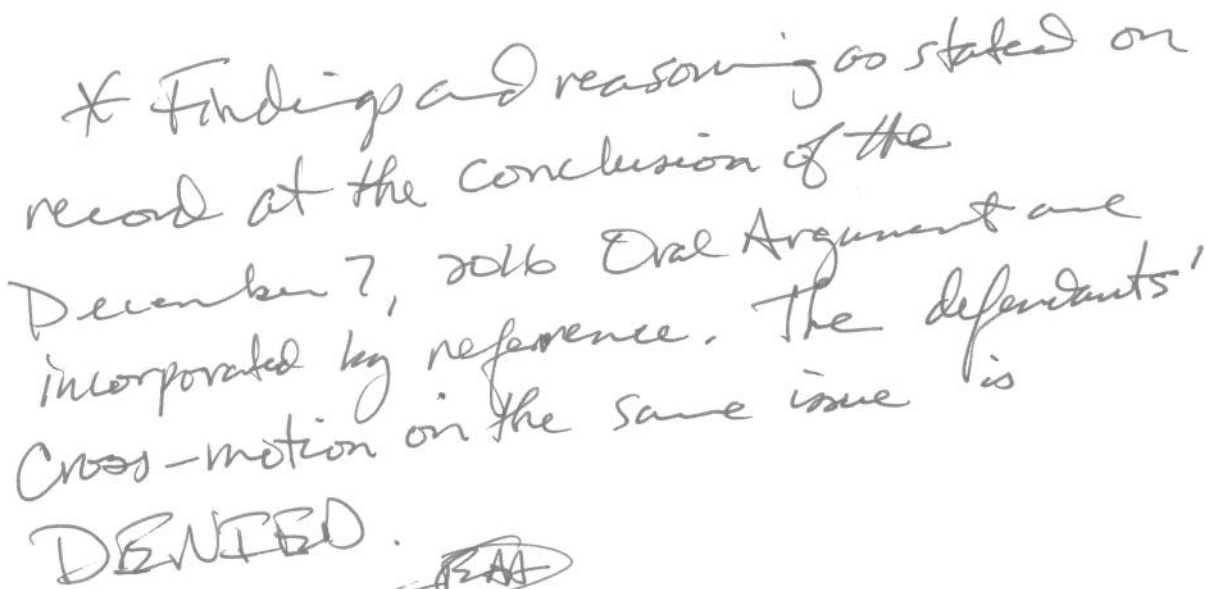 * Findings and reasoning as stated on
record at the conclusion of the
December 7, 2016 Oral Argument are
incorporated by reference. The defendants'
Cross-motion on the same issue is
DENIED.